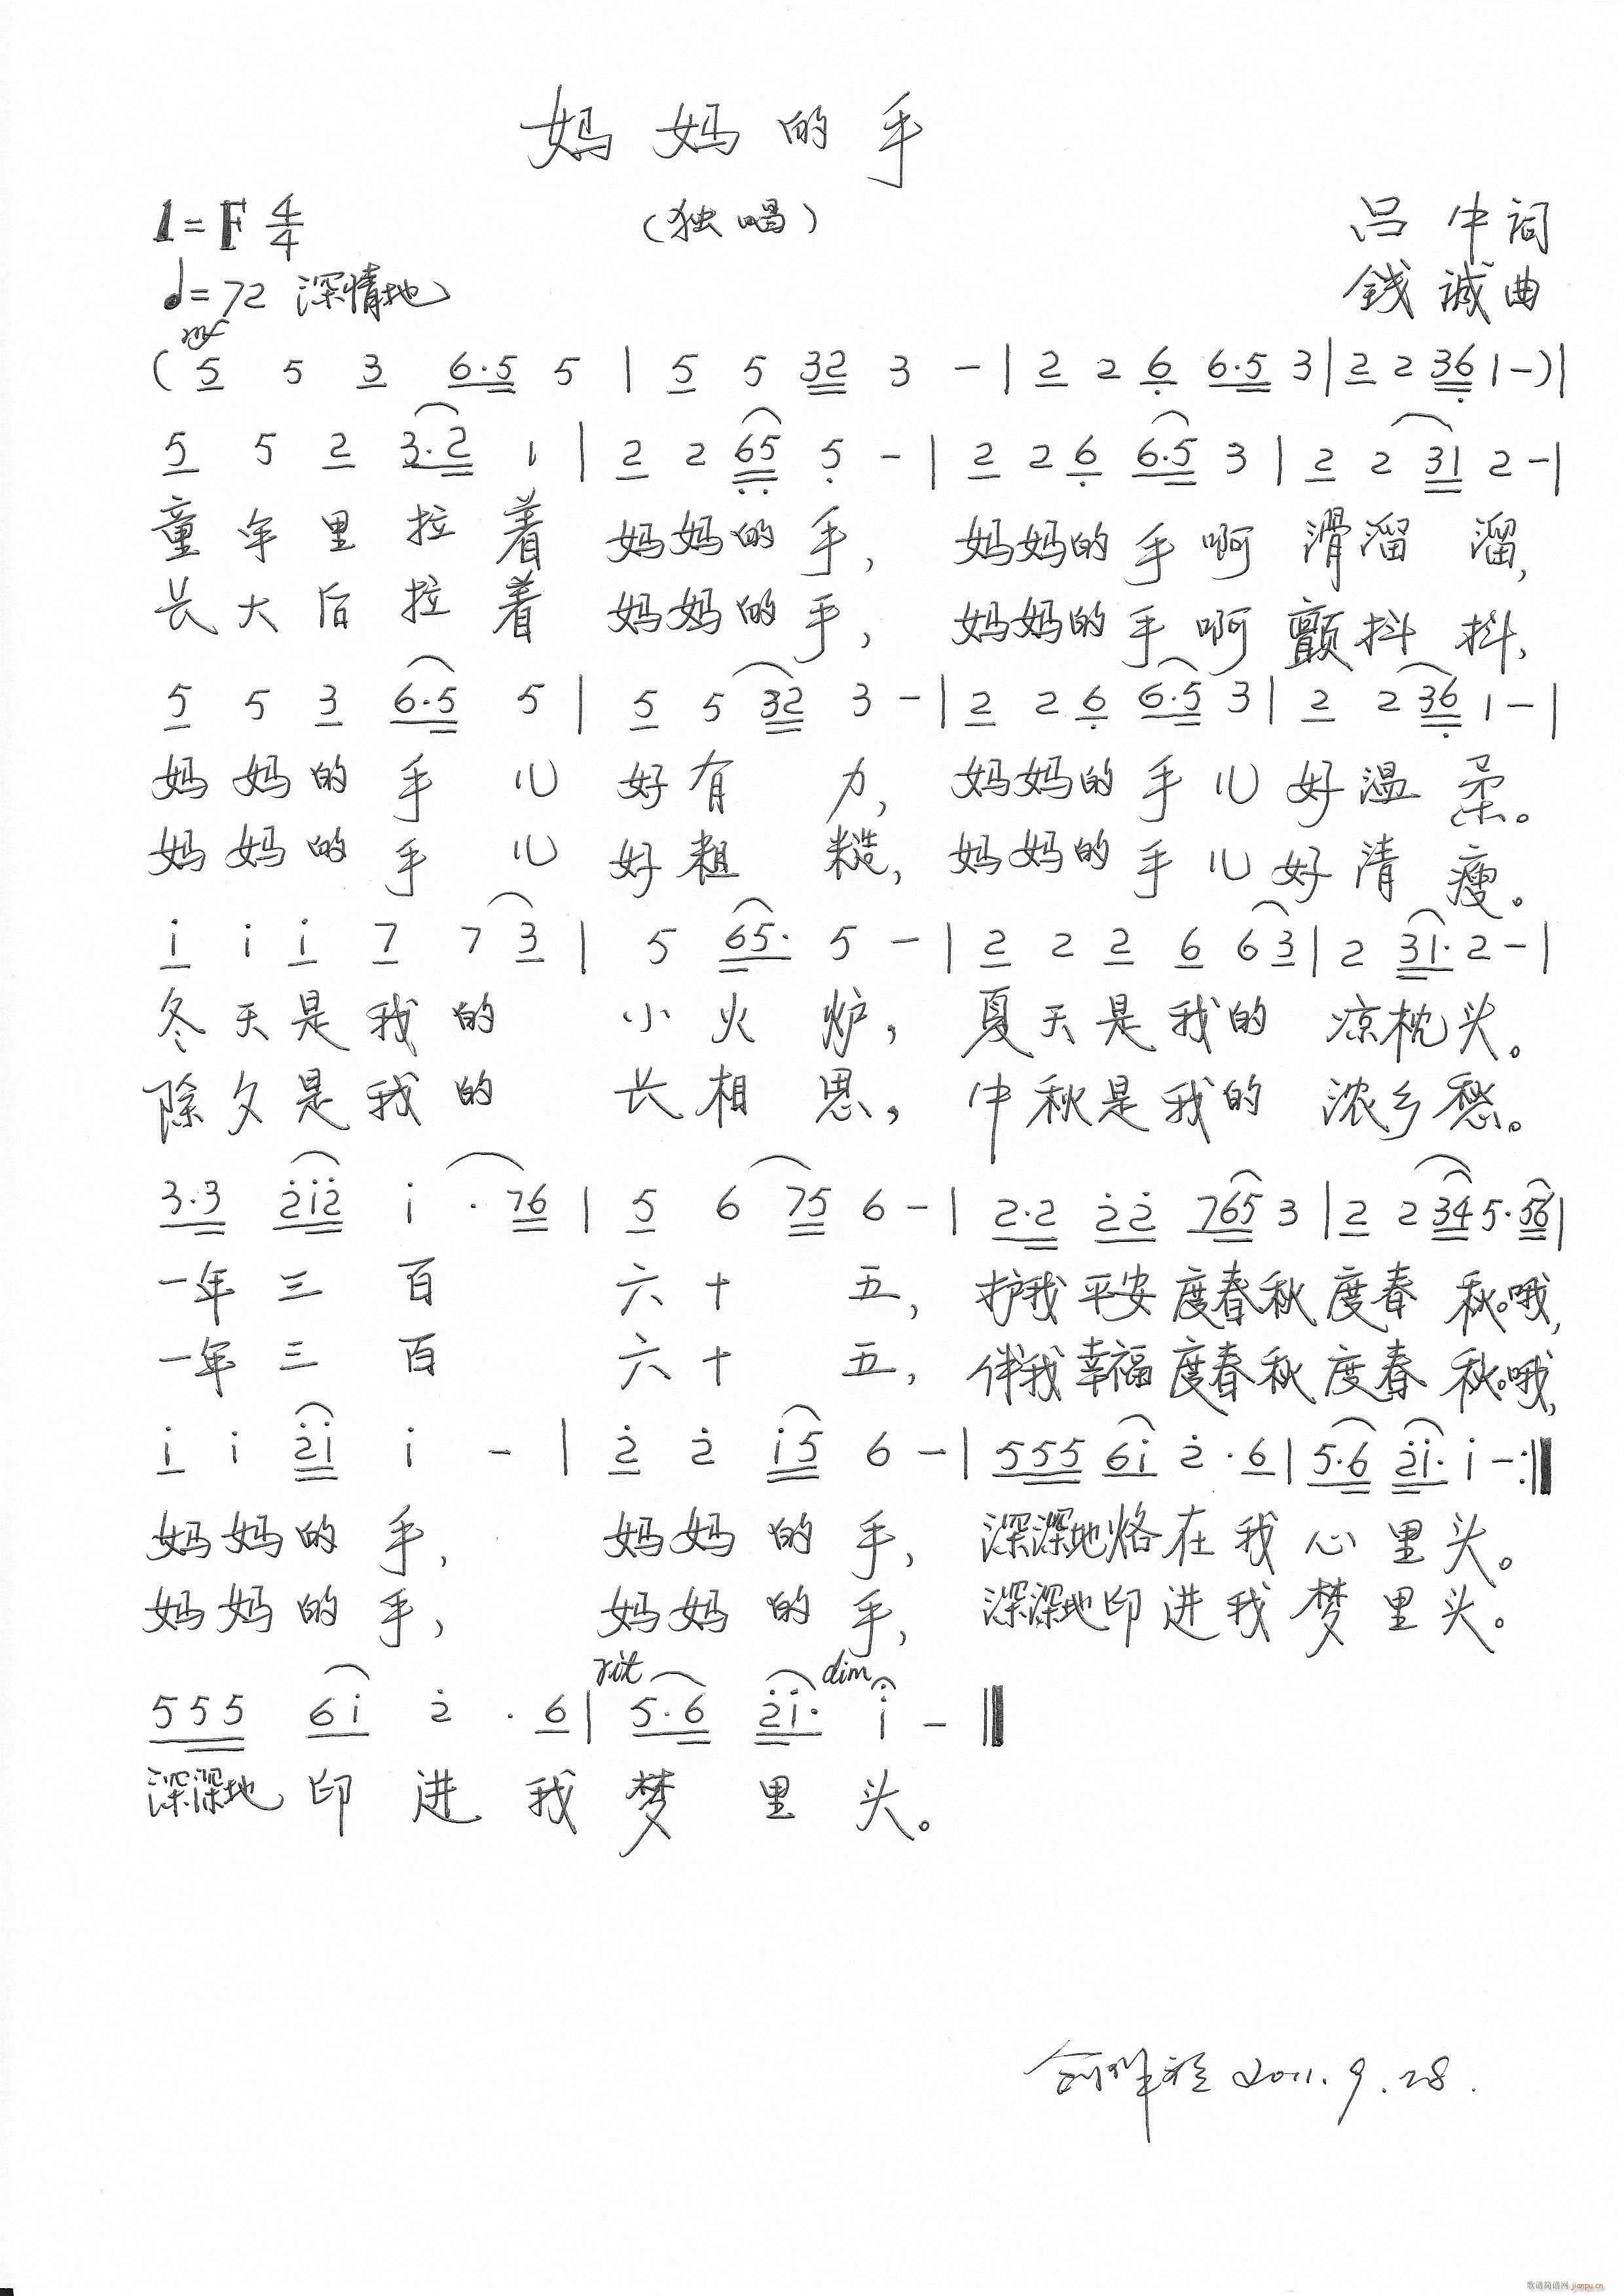 妈妈的手
1=F 4/4 (独唱) 吕中词
♩=72 深情地 钱诚曲
mf
(5 5 3 6·5 5 | 5 5 32 3 - | 2 2 6 6·5 3 | 2 2 36 1 -) |
5 5 2 3·2 1 | 2 2 65 5 - | 2 2 6 6·5 3 | 2 2 31 2 - |
童年里拉着 妈妈的手, 妈妈的手啊 滑溜溜,
长大后拉着 妈妈的手, 妈妈的手啊 颤抖抖,
5 5 3 6·5 5 | 5 5 32 3 - | 2 2 6 6·5 3 | 2 2 36 1 - |
妈妈的手儿 好有力, 妈妈的手儿好温柔。
妈妈的手儿 好粗糙, 妈妈的手儿好清瘦。
i i i 7 7 3 | 5 65· 5 - | 2 2 2 6 6 3 | 2 31· 2 - |
冬天是我的 小火炉, 夏天是我的 凉枕头。
除夕是我的 长相思, 中秋是我的 浓乡愁。
3·3 2i2 i · 76 | 5 6 75 6 - | 2·2 22 765 3 | 2 2 34 5·56 |
一年三百 六十五, 护我平安度春秋度春秋。哦,
一年三百 六十五, 伴我幸福度春秋度春秋。哦,
i i 2i i - | 2 2 i5 6 - | 555 6i 2·6 | 5·6 2i· i - :‖
妈妈的手, 妈妈的手, 深深地烙在我心里头。
妈妈的手, 妈妈的手, 深深地印进我梦里头。
rit dim
555 6i 2·6 | 5·6 2i· i - ‖
深深地印进我梦里头。
2011.9.28.
歌谱简谱网 jianpu.cn